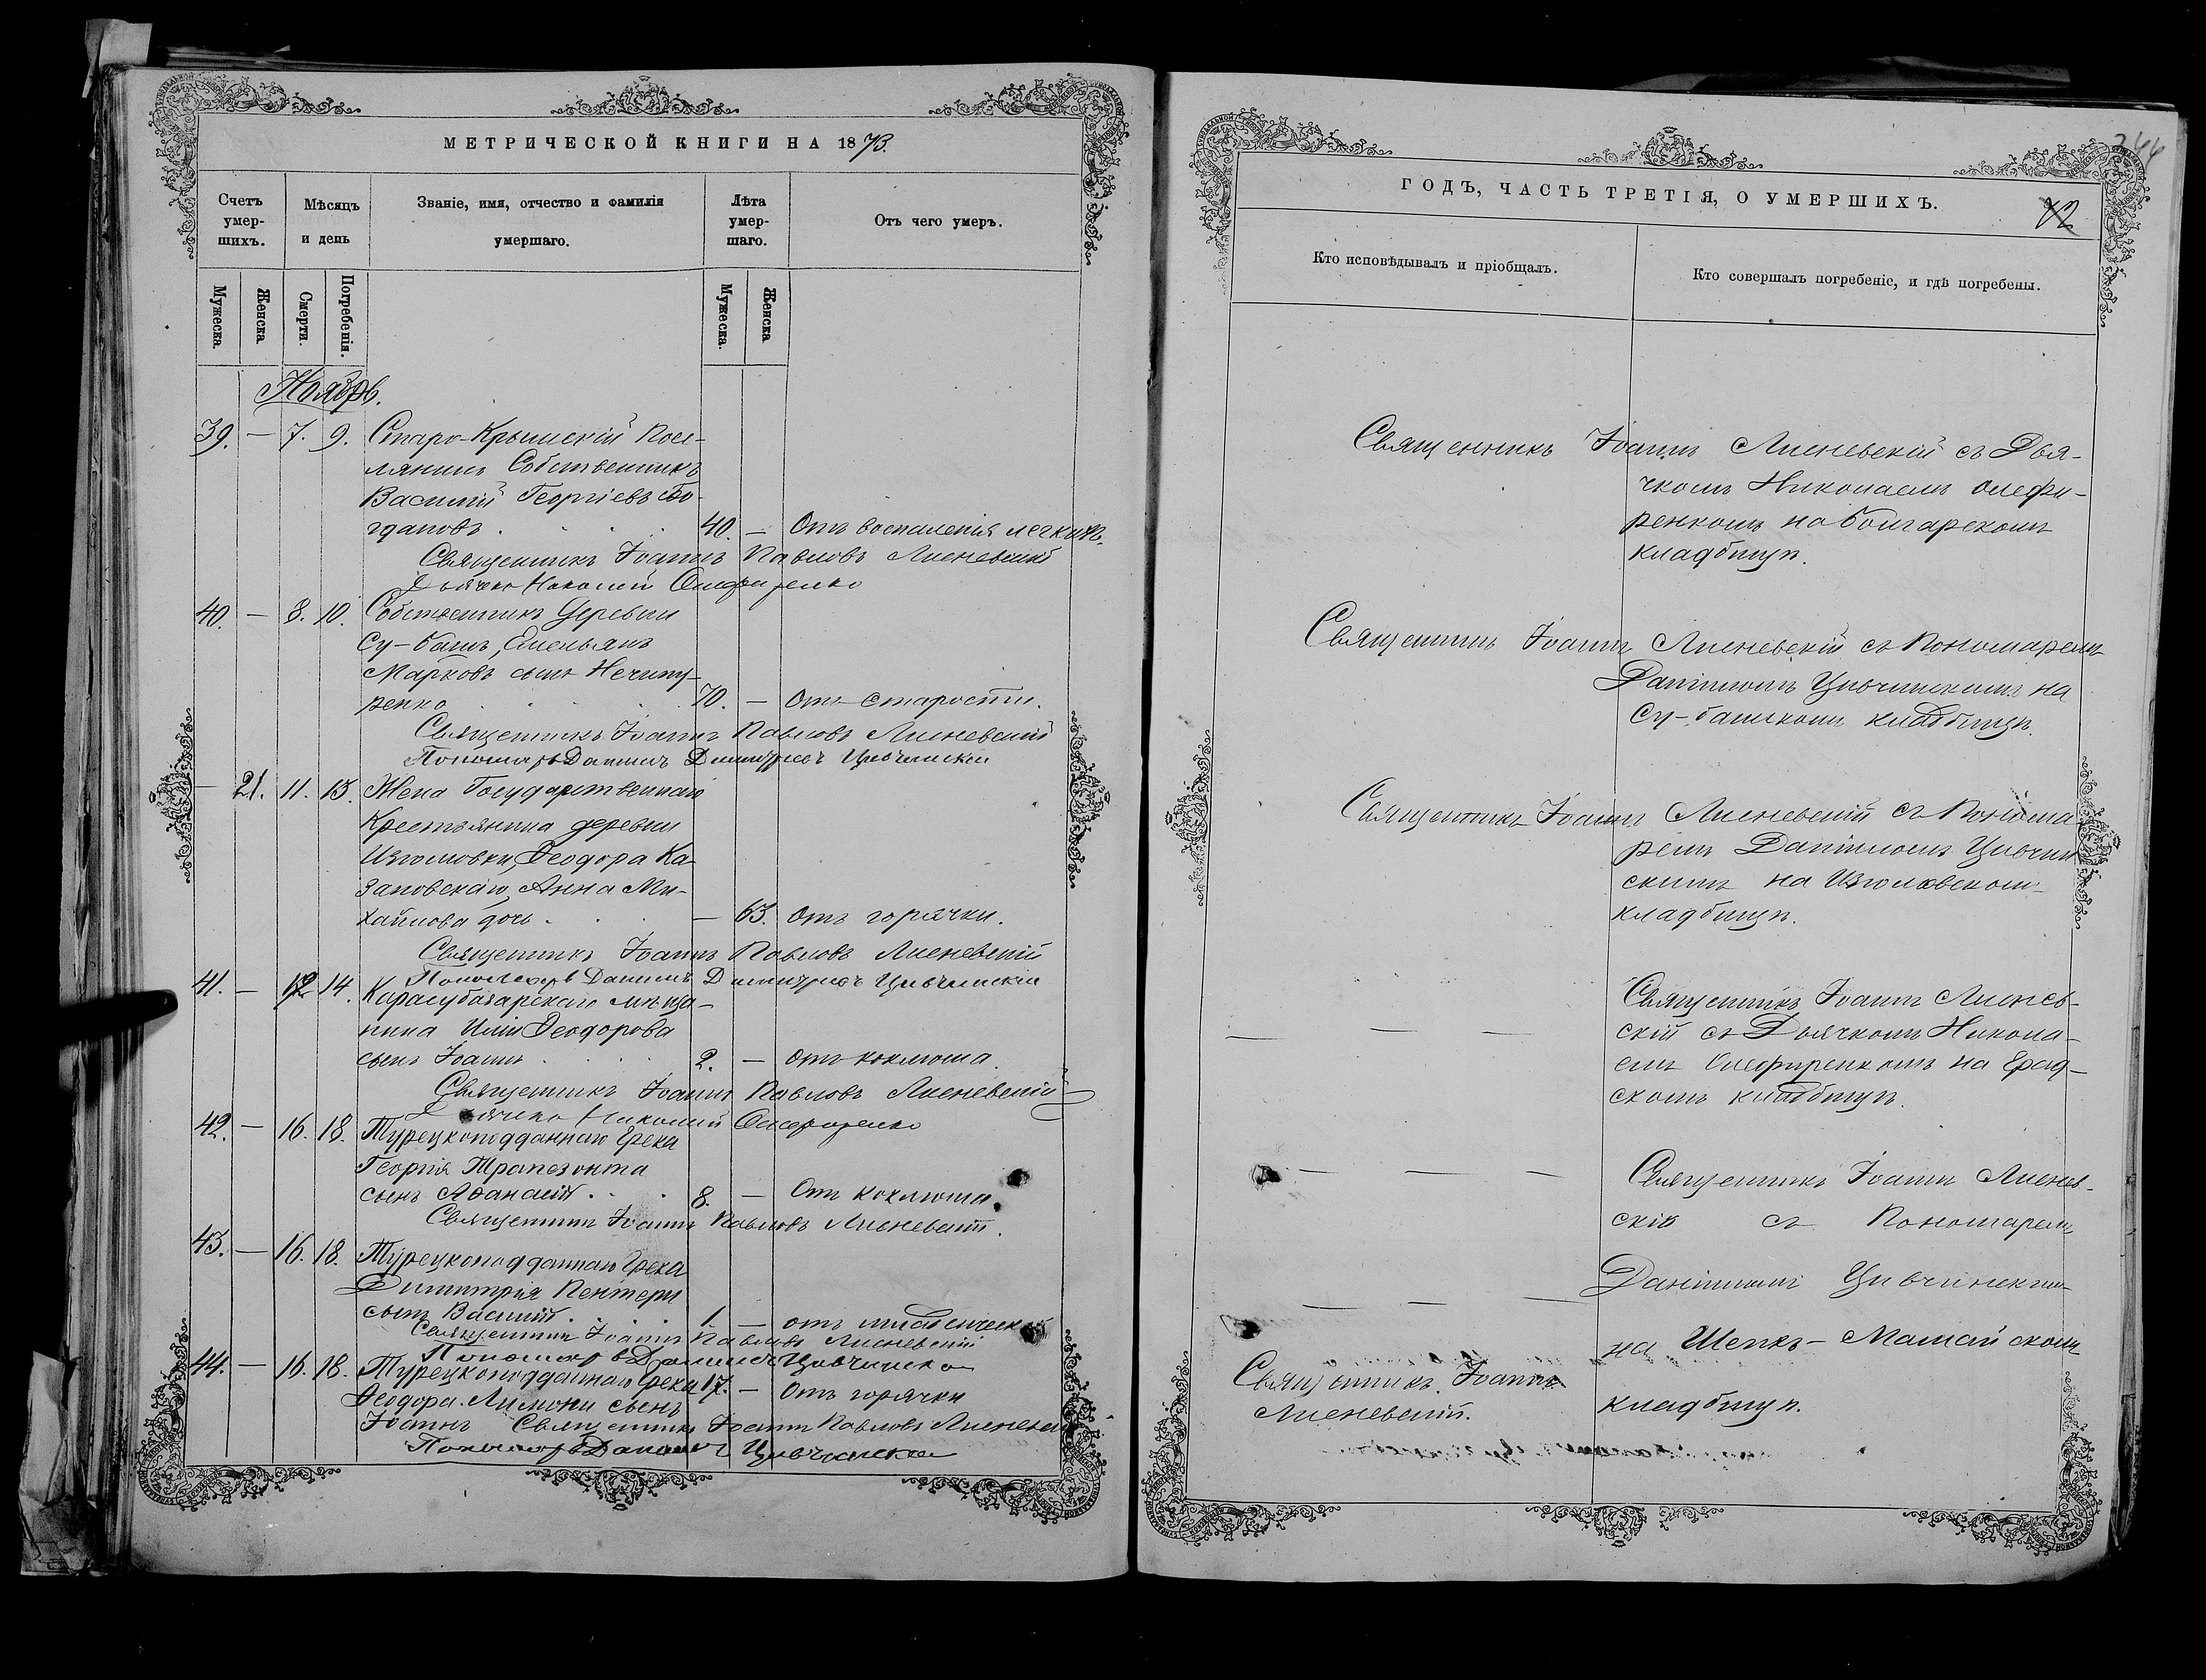 МЕТРИЧЕСКОЙ КНИГИ НА 1873.
Счетъ умер-шихъ.
Мѣсяцъ и день
Званіе, имя, отчество и фамилія умершаго.
Лѣта умер-шаго.
Отъ чего умеръ.
Мужеска.
Женска
Смерти.
Погребенія.
Мужеска.
Женска
Ноябрь.
39. — 7. 9. Старо-Крымскій Посе-
лянинъ Собственникъ
Василій Георгіевъ Бо-
гдановъ . . . 40. — Отъ воспаленія легкихъ.
Священникъ Іоаннъ Павловъ Лисневскій
Дьячекъ Николай Олефиренко
40. — 8. 10. Собственникъ деревни
Су-башъ, Емельянъ
Марковъ сынъ Нечипу-
ренко . . . 70. — Отъ старости.
Священникъ Іоаннъ Павловъ Лисневскій
Пономарь Даниилъ Димитріевъ Цивчинскій
— 21. 11. 13. Жена Государственнаго
Крестьянина деревни
Изюмовки, Ѳеодора Ка-
зановскаго, Анна Ми-
хайлова дочь . . . — 63. Отъ горячки.
Священникъ Іоаннъ Павловъ Лисневскій
Пономарь Даниилъ Димитріевъ Цивчинскій
41. — 12 14. Карасубазарскаго мѣща-
нина Иліи Ѳеодорова
сынъ Іоаннъ . . . 2. — Отъ коклюша.
Священникъ Іоаннъ Павловъ Лисневскій
Дьячекъ Николай Олефиренко
42. — 16. 18. Турецкоподданнаго Грека
Георгія Трапезонта
сынъ Аѳанасій . . . 8. — Отъ коклюша.
Священникъ Іоаннъ Павловъ Лисневскій.
43. — 16. 18. Турецкоподданнаго Грека
Димитрія Пентери
сынъ Василій . . . 1. — отъ
Священникъ Іоаннъ Павловъ Лисневскій
Пономарь Даниилъ Цивчинскій
44. — 16. 18. Турецкоподданнаго Грека 17. — Отъ горячки
Ѳеодора Лимони сынъ
Іоаннъ Священникъ Іоаннъ Павловъ Лисневскій
Пономарь Даниилъ Цивчинскій
244
ГОДЪ, ЧАСТЬ ТРЕТІЯ, О УМЕРШИХЪ.
42
Кто исповѣдывалъ и пріобщалъ.
Кто совершалъ погребеніе, и гдѣ погребены.
Священникъ Іоаннъ Лисневскій съ Дья-
чкомъ Николаемъ Олефи-
ренкомъ на болгарскомъ
кладбищѣ.
Священникъ Іоаннъ Лисневскій съ Пономаремъ
Даніиломъ Цивчинскимъ на
Су-башскомъ кладбищѣ.
Священникъ Іоаннъ Лисневскій съ Понома-
ремъ Даніиломъ Цивчин-
скимъ на Изюмовскомъ
кладбищѣ.
— — — Священникъ Іоаннъ Лиснев-
скій съ Дьячкомъ Никола-
емъ Олефиренкомъ на Град-
скомъ кладбищѣ.
— — — Священникъ Іоаннъ Лиснев-
скій съ Пономаремъ
— — — Даніиломъ Цивчинскимъ
на Шейхъ-Мамайскомъ
кладбищѣ.
Священникъ Іоаннъ
Лисневскій.